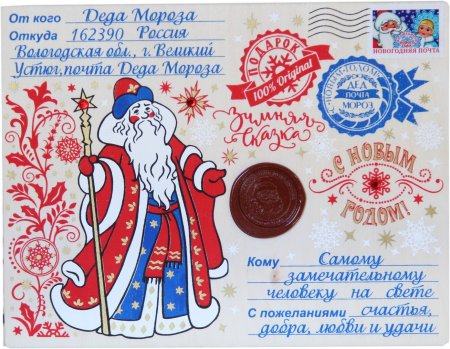 От кого Деда Мороза
Откуда 162390 Россия
Вологодская обл., г. Великий
Устюг, почта Деда Мороза
НОВОГОДНЯЯ ПОЧТА
ПОДАРОК
100% Original
С НОВЫМ ГОДОМ!
ДЕД
ПОЧТА
МОРОЗ
Зимняя
сказка
С НОВЫМ
ГОДОМ!
Кому Самому
замечательному
человеку на свете
С пожеланиями счастья,
добра, любви и удачи